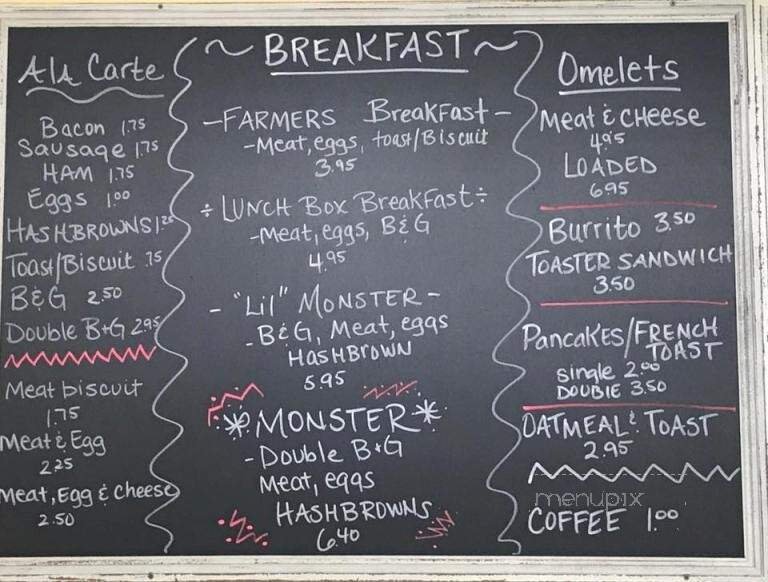 Ala Carte
Bacon 1.75
Sausage 1.75
HAM 1.75
Eggs 1.00
HASHBROWNS 1.25
Toast/Biscuit .75
B&G 2.50
Double B+G 2.95
Meat biscuit
1.75
Meat & Egg
2.25
Meat, Egg & Cheese
2.50
~ BREAKFAST ~
- FARMERS Breakfast -
- Meat, eggs, toast/Biscuit
3.95
÷ LUNCH Box Breakfast ÷
- Meat, eggs, B&G
4.95
- "Lil" MONSTER -
- B&G, Meat, eggs
HASHBROWN
5.95
* MONSTER *
- Double B+G
Meat, eggs
HASHBROWNS
6.40
Omelets
Meat & CHeese
4.95
LOADED
6.95
Burrito 3.50
TOASTER SANDWICH
3.50
Pancakes/FRENCH
TOAST
single 2.00
DOUBLE 3.50
OATMEAL & TOAST
2.95
menupix
COFFEE 1.00